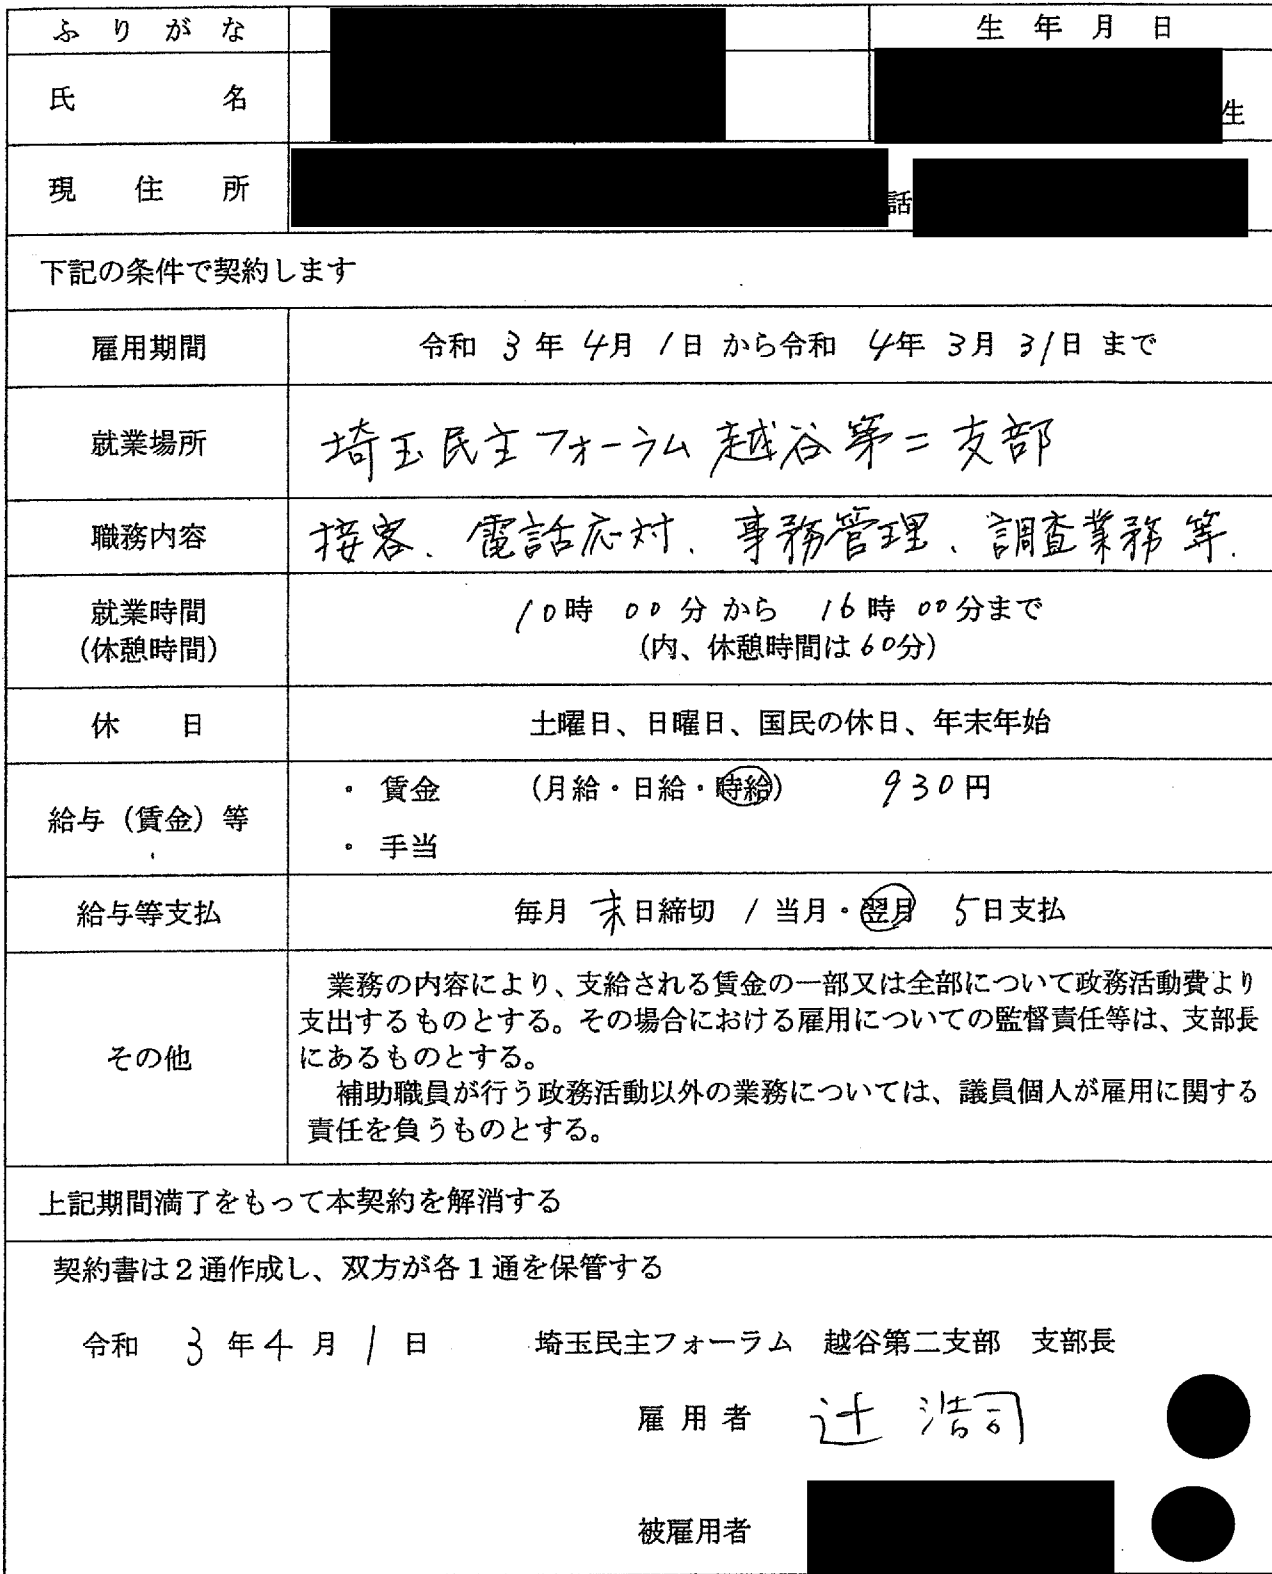 ふりがな
生年月日
氏名
生
現住所
話
下記の条件で契約します
雇用期間
令和 3年 4月 1日 から令和 4年 3月 31日 まで
就業場所
埼玉民主フォーラム越谷第二支部
職務内容
接客、電話応対、事務管理、調査業務等.
就業時間
(休憩時間)
10時 00分 から 16時 00分まで
(内、休憩時間は60分)
休日
土曜日、日曜日、国民の休日、年末年始
給与(賃金)等
・ 賃金 (月給・日給・時給) 930円
・ 手当
給与等支払
毎月 末日締切 / 当月・翌月 5日支払
その他
業務の内容により、支給される賃金の一部又は全部について政務活動費より
支出するものとする。その場合における雇用についての監督責任等は、支部長
にあるものとする。
補助職員が行う政務活動以外の業務については、議員個人が雇用に関する
責任を負うものとする。
上記期間満了をもって本契約を解消する
契約書は2通作成し、双方が各1通を保管する
令和 3年4月1日 埼玉民主フォーラム 越谷第二支部 支部長
雇用者 辻 浩司
被雇用者